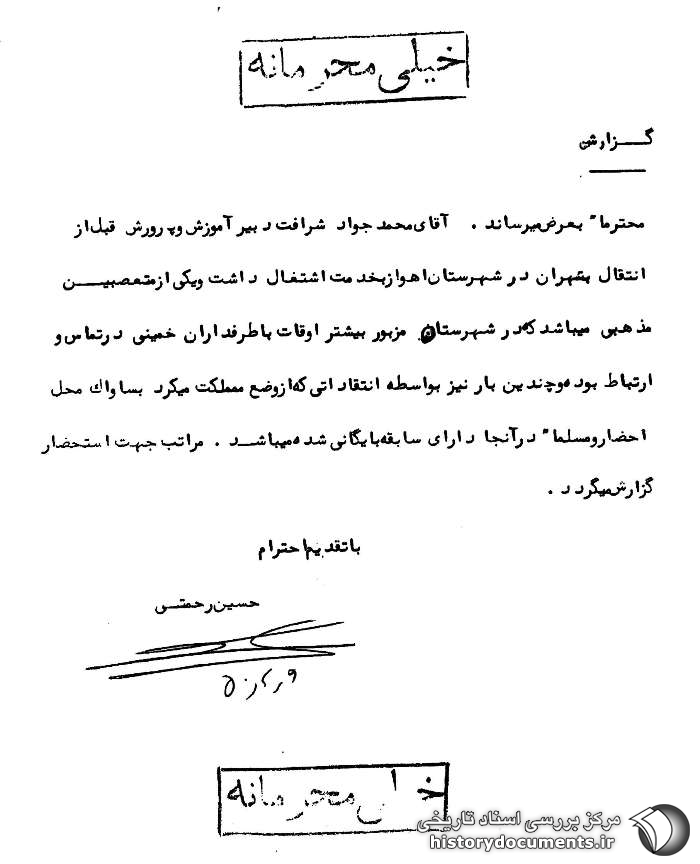 خیلی محرمانه
گزارش
محترما" بعرض میرساند . آقای محمد جواد شرافت دبیر آموزش وپرورش قبل از
انتقال بتهران در شهرستان اهواز بخدمت اشتغال داشت ویکی از متعصبین
مذهبی میباشد که در شهرستان مزبور بیشتر اوقات باطرفداران خمینی درتماس و
ارتباط بوده وچندین بار نیز بواسطه انتقاداتی که از وضع مملکت میکرد بساواك محل
احضار ومسلما" در آنجا دارای سابقه بایگانی شده میباشد . مراتب جهت استحضار
گزارش میگردد .
باتقدیم احترام
حسین رحمتی
خیلی محرمانه
مرکز بررسی اسناد تاریخی
historydocuments.ir